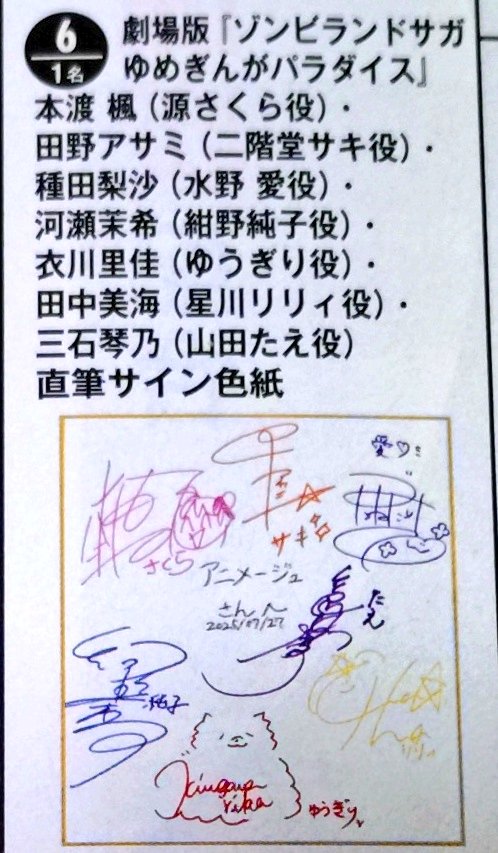 6
1名
劇場版『ゾンビランドサガ
ゆめぎんがパラダイス』
本渡 楓（源さくら役）・
田野アサミ（二階堂サキ役）・
種田梨沙（水野 愛役）・
河瀬茉希（紺野純子役）・
衣川里佳（ゆうぎり役）・
田中美海（星川リリィ役）・
三石琴乃（山田たえ役）
直筆サイン色紙
愛
サキ
さくら
アニメージュ
さんへ
2025/07/27
たえ
純子
Kinugawa
rika
ゆうぎり